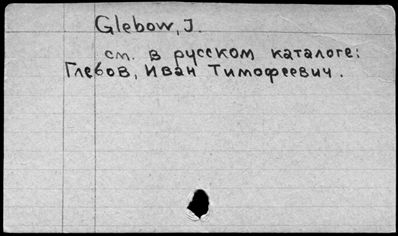 Glebow, J.
см. в русском каталоге:
Глебов, Иван Тимофеевич.